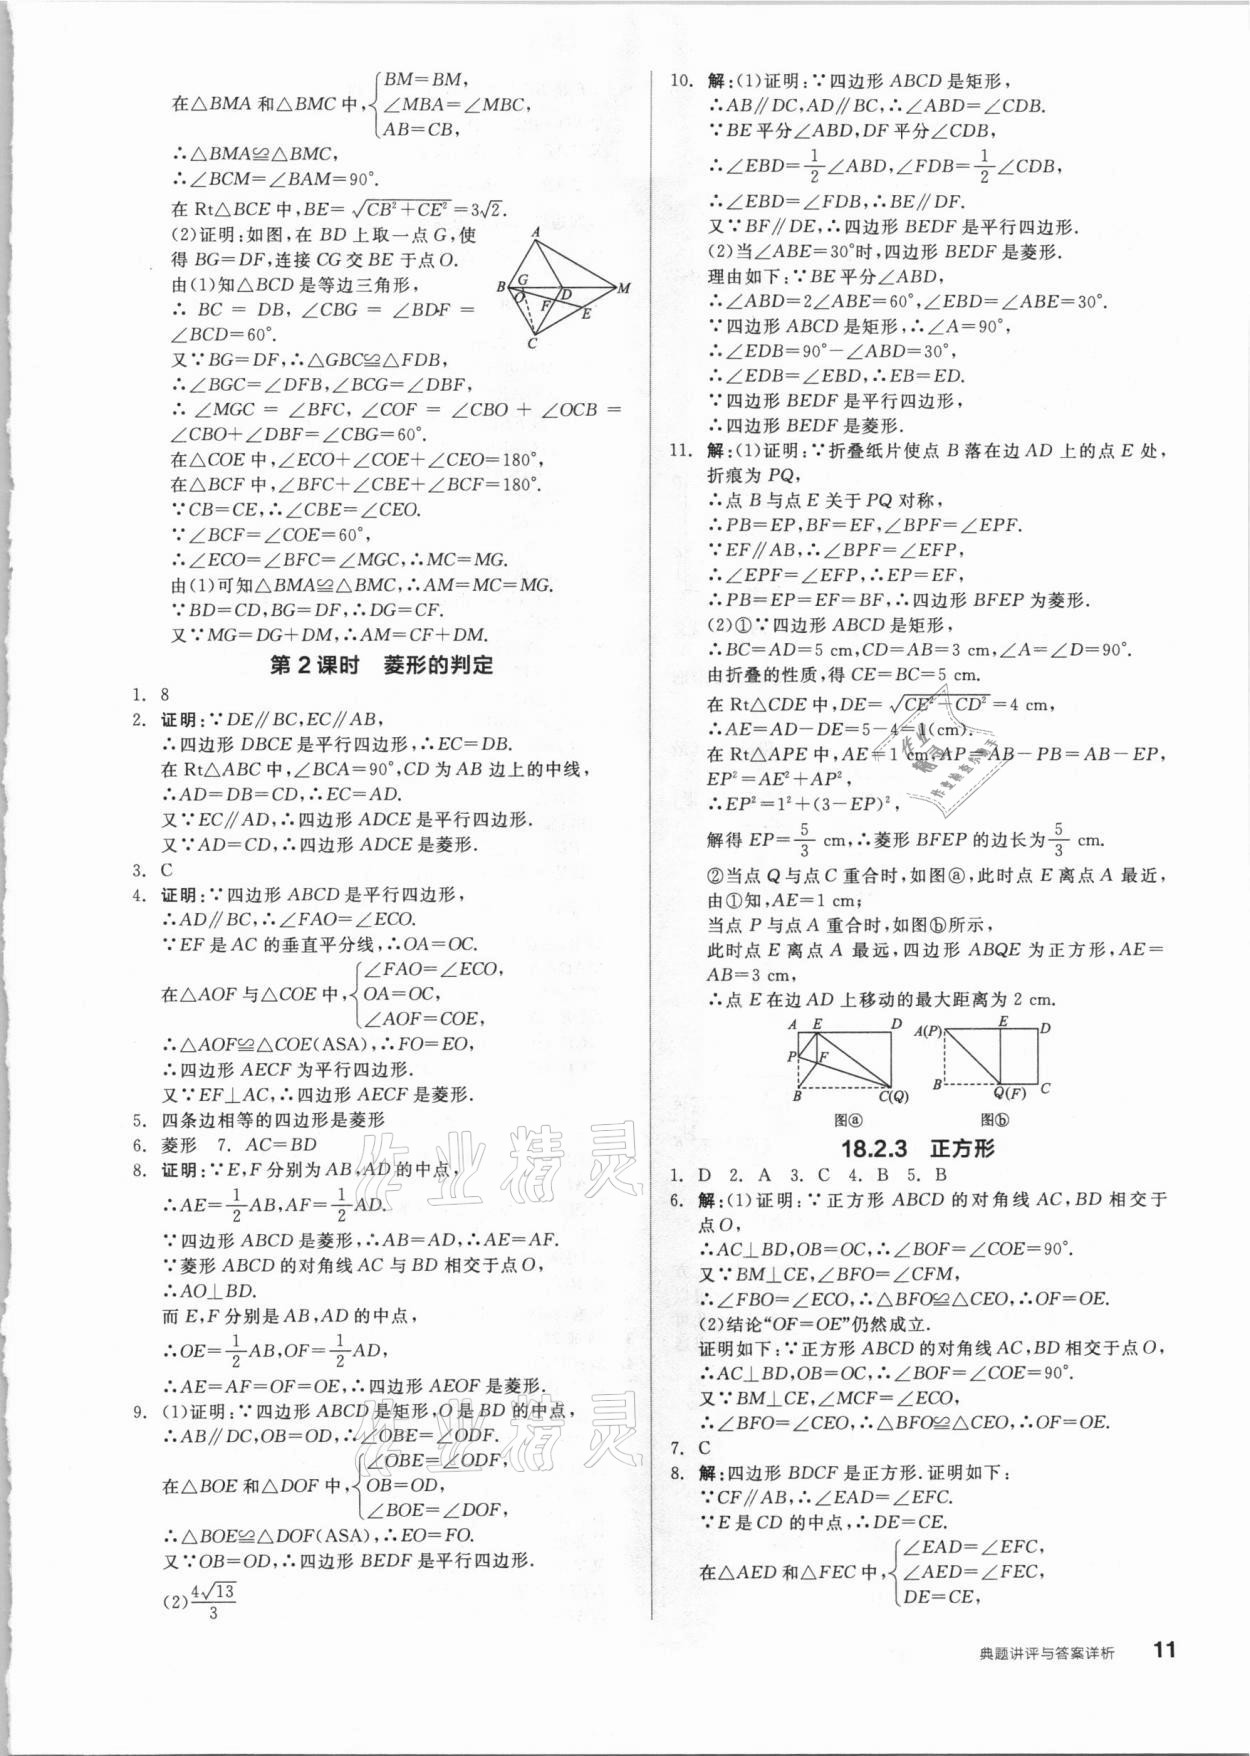 在△BMA 和△BMC 中,{BM=BM,
∠MBA=∠MBC,
AB=CB,
∴△BMA≌△BMC,
∴∠BCM=∠BAM=90°.
在 Rt△BCE 中,BE=√(CB²+CE²)=3√2.
(2)证明:如图,在 BD 上取一点 G,使
得 BG=DF,连接 CG 交 BE 于点 O.
由(1)知△BCD 是等边三角形,
∴ BC = DB, ∠CBG = ∠BDF =
∠BCD=60°.
又∵BG=DF,∴△GBC≌△FDB,
∴∠BGC=∠DFB,∠BCG=∠DBF,
∴ ∠MGC = ∠BFC, ∠COF = ∠CBO + ∠OCB =
∠CBO+∠DBF=∠CBG=60°.
在△COE 中,∠ECO+∠COE+∠CEO=180°,
在△BCF 中,∠BFC+∠CBE+∠BCF=180°.
∵CB=CE,∴∠CBE=∠CEO.
∵∠BCF=∠COE=60°,
∴∠ECO=∠BFC=∠MGC,∴MC=MG.
由(1)可知△BMA≌△BMC,∴AM=MC=MG.
∵BD=CD,BG=DF,∴DG=CF.
又∵MG=DG+DM,∴AM=CF+DM.
A
B G
O F D M
E
C
第 2 课时 菱形的判定
1. 8
2. 证明:∵DE∥BC,EC∥AB,
∴四边形 DBCE 是平行四边形,∴EC=DB.
在 Rt△ABC 中,∠BCA=90°,CD 为 AB 边上的中线,
∴AD=DB=CD,∴EC=AD.
又∵EC∥AD,∴四边形 ADCE 是平行四边形.
又∵AD=CD,∴四边形 ADCE 是菱形.
3. C
4. 证明:∵四边形 ABCD 是平行四边形,
∴AD∥BC,∴∠FAO=∠ECO.
∵EF 是 AC 的垂直平分线,∴OA=OC.
在△AOF 与△COE 中,{∠FAO=∠ECO,
OA=OC,
∠AOF=COE,
∴△AOF≌△COE(ASA),∴FO=EO,
∴四边形 AECF 为平行四边形.
又∵EF⊥AC,∴四边形 AECF 是菱形.
5. 四条边相等的四边形是菱形
6. 菱形 7. AC=BD
8. 证明:∵E,F 分别为 AB,AD 的中点,
∴AE=1/2 AB,AF=1/2 AD.
∵四边形 ABCD 是菱形,∴AB=AD,∴AE=AF.
∵菱形 ABCD 的对角线 AC 与 BD 相交于点 O,
∴AO⊥BD.
而 E,F 分别是 AB,AD 的中点,
∴OE=1/2 AB,OF=1/2 AD,
∴AE=AF=OF=OE,∴四边形 AEOF 是菱形.
9. (1)证明:∵四边形 ABCD 是矩形,O 是 BD 的中点,
∴AB∥DC,OB=OD,∴∠OBE=∠ODF.
在△BOE 和△DOF 中,{∠OBE=∠ODF,
OB=OD,
∠BOE=∠DOF,
∴△BOE≌△DOF(ASA),∴EO=FO.
又∵OB=OD,∴四边形 BEDF 是平行四边形.
(2)4√13/3
10. 解:(1)证明:∵四边形 ABCD 是矩形,
∴AB∥DC,AD∥BC,∴∠ABD=∠CDB.
∵BE 平分∠ABD,DF 平分∠CDB,
∴∠EBD=1/2∠ABD,∠FDB=1/2∠CDB,
∴∠EBD=∠FDB,∴BE∥DF.
又∵BF∥DE,∴四边形 BEDF 是平行四边形.
(2)当∠ABE=30°时,四边形 BEDF 是菱形.
理由如下:∵BE 平分∠ABD,
∴∠ABD=2∠ABE=60°,∠EBD=∠ABE=30°.
∵四边形 ABCD 是矩形,∴∠A=90°,
∴∠EDB=90°-∠ABD=30°,
∴∠EDB=∠EBD,∴EB=ED.
∵四边形 BEDF 是平行四边形,
∴四边形 BEDF 是菱形.
11. 解:(1)证明:∵折叠纸片使点 B 落在边 AD 上的点 E 处,
折痕为 PQ,
∴点 B 与点 E 关于 PQ 对称,
∴PB=EP,BF=EF,∠BPF=∠EPF.
∵EF∥AB,∴∠BPF=∠EFP,
∴∠EPF=∠EFP,∴EP=EF,
∴PB=EP=EF=BF,∴四边形 BFEP 为菱形.
(2)①∵四边形 ABCD 是矩形,
∴BC=AD=5 cm,CD=AB=3 cm,∠A=∠D=90°.
由折叠的性质,得 CE=BC=5 cm.
在 Rt△CDE 中,DE=√(CE²-CD²)=4 cm,
∴AE=AD-DE=5-4=1(cm).
在 Rt△APE 中,AE=1 cm,AP=AB-PB=AB-EP,
EP²=AE²+AP²,
∴EP²=1²+(3-EP)²,
解得 EP=5/3 cm,∴菱形 BFEP 的边长为5/3 cm.
②当点 Q 与点 C 重合时,如图ⓐ,此时点 E 离点 A 最近,
由①知,AE=1 cm;
当点 P 与点 A 重合时,如图ⓑ所示,
此时点 E 离点 A 最远,四边形 ABQE 为正方形,AE=
AB=3 cm,
∴点 E 在边 AD 上移动的最大距离为 2 cm.
A E D
P F
B C(Q)
图ⓐ
A(P) E D
B Q(F) C
图ⓑ
18.2.3 正方形
1. D 2. A 3. C 4. B 5. B
6. 解:(1)证明:∵正方形 ABCD 的对角线 AC,BD 相交于
点 O,
∴AC⊥BD,OB=OC,∴∠BOF=∠COE=90°.
又∵BM⊥CE,∠BFO=∠CFM,
∴∠FBO=∠ECO,∴△BFO≌△CEO,∴OF=OE.
(2)结论“OF=OE”仍然成立.
证明如下:∵正方形 ABCD 的对角线 AC,BD 相交于点 O,
∴AC⊥BD,OB=OC,∴∠BOF=∠COE=90°.
又∵BM⊥CE,∠MCF=∠ECO,
∴∠BFO=∠CEO,∴△BFO≌△CEO,∴OF=OE.
7. C
8. 解:四边形 BDCF 是正方形.证明如下:
∵CF∥AB,∴∠EAD=∠EFC.
∵E 是 CD 的中点,∴DE=CE.
在△AED 和△FEC 中,{∠EAD=∠EFC,
∠AED=∠FEC,
DE=CE,
典题讲评与答案详析 11
作业精灵
作业精灵
作业
精灵
作业检查小帮手